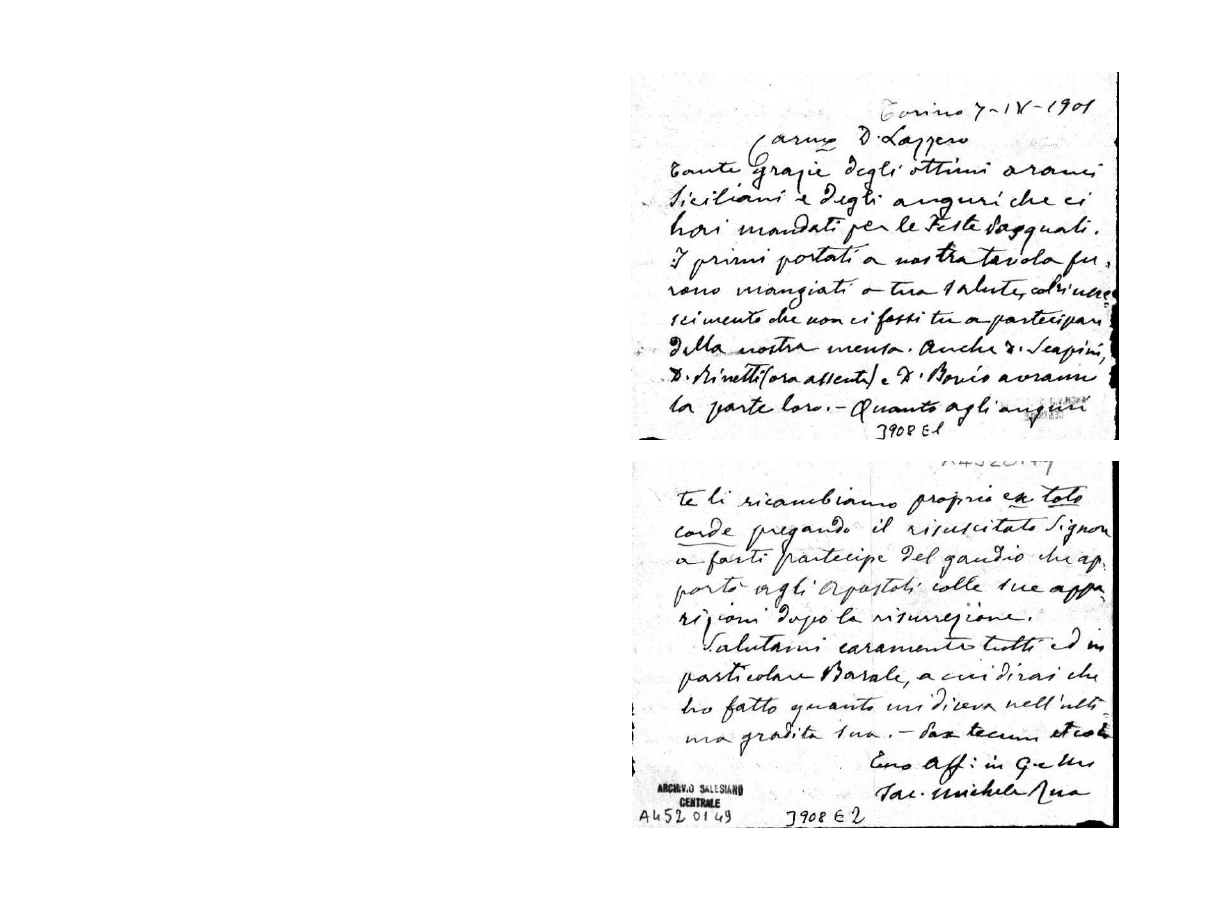 Torino 7-IV-1901
Carmo D. Lazzero
Tante grazie degli ottimi aranci
Siciliani e degli auguri che ci
hai mandati per le Feste Pasquali.
I primi portati a nostra tavola fu-
rono mangiati a tua salute, col rincre-
scimento che non ci fossi tu a partecipare
della nostra mensa. Anche D. Scapini,
D. Rinetti (ora assente) e D. Bovio avranno
la parte loro. - Quanto agli auguri
3908 E1
te li ricambiamo proprio ex toto
corde pregando il risuscitato Signore
a farti partecipe del gaudio che ap-
portò agli Apostoli colle sue appa-
rizioni dopo la risurrezione.
Salutami caramente tutti ed in
particolare Barale, a cui dirai che
ho fatto quanto mi diceva nell'ulti-
ma gradita sua. - Pax tecum et
Tuo Aff: in G. e M.
Sac. Michele Rua
ARCHIVIO SALESIANO
CENTRALE
A452 01 49
3908 E2